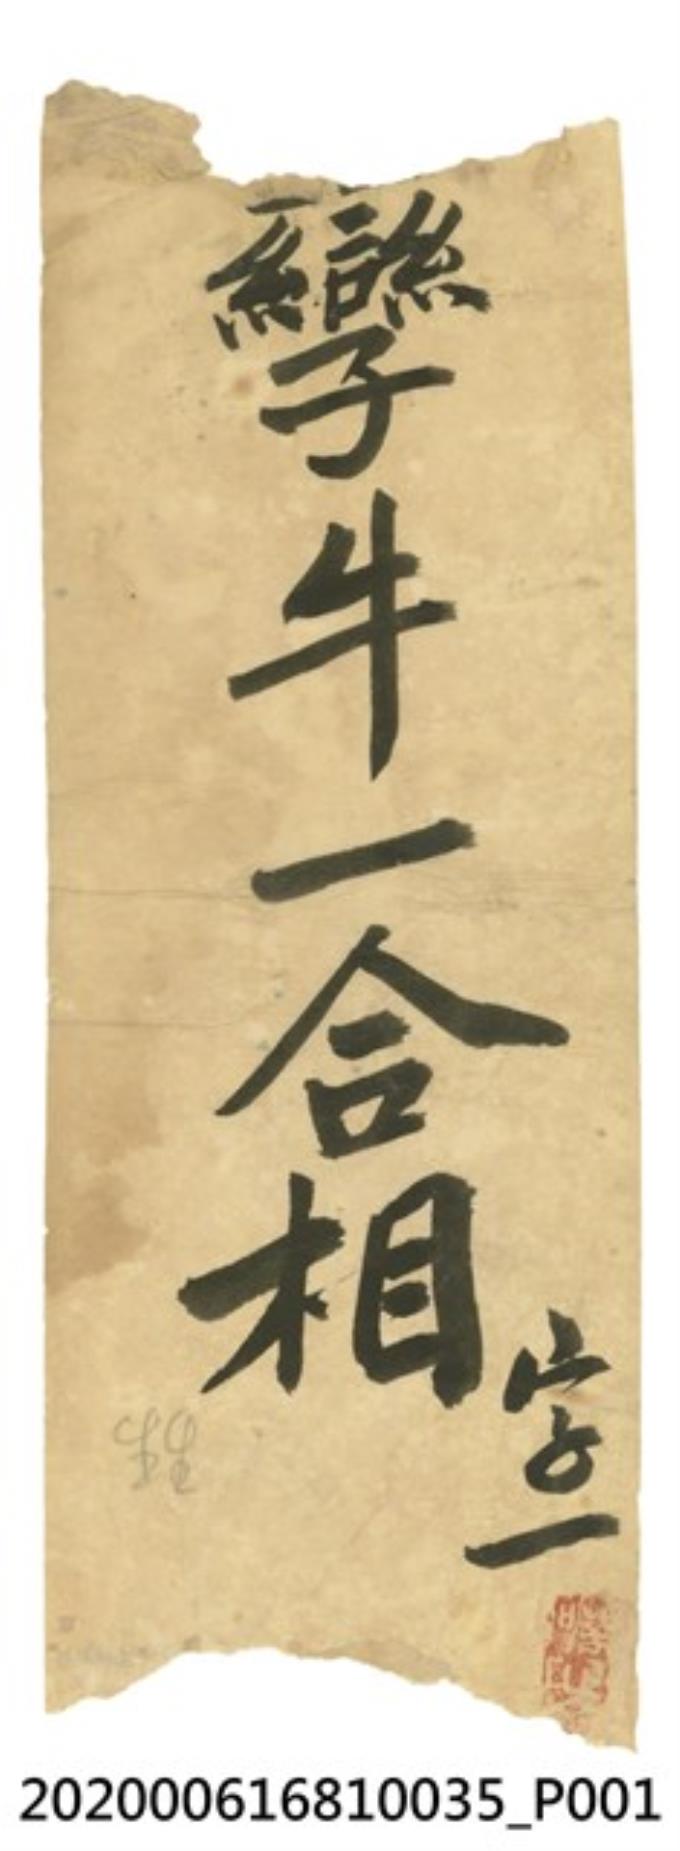 孿生一合相
字一
202000616810035_P001